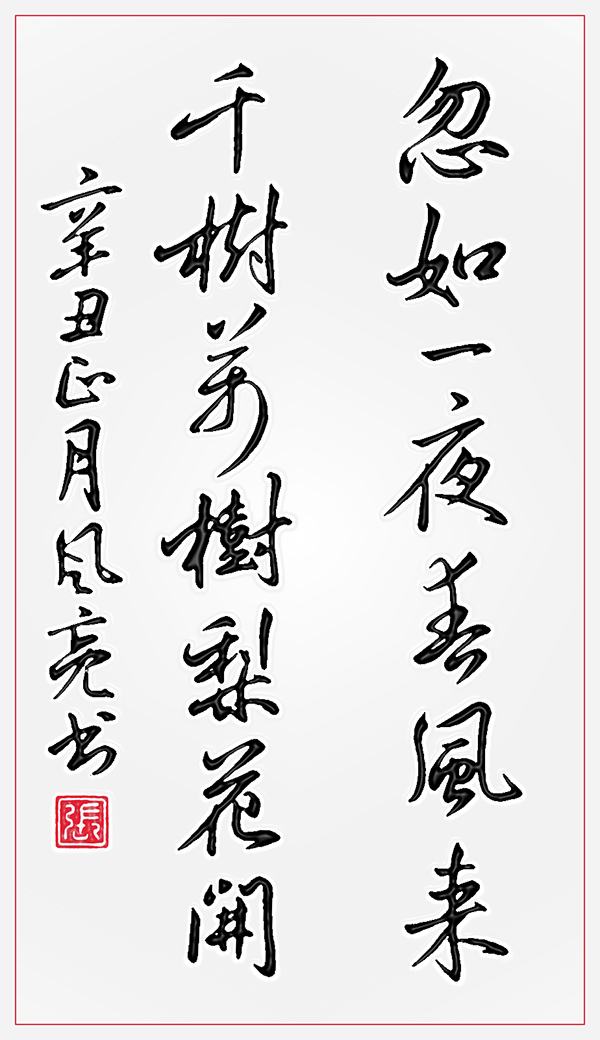 忽如一夜春風来
千樹萬樹梨花開
辛丑正月风亮书
張